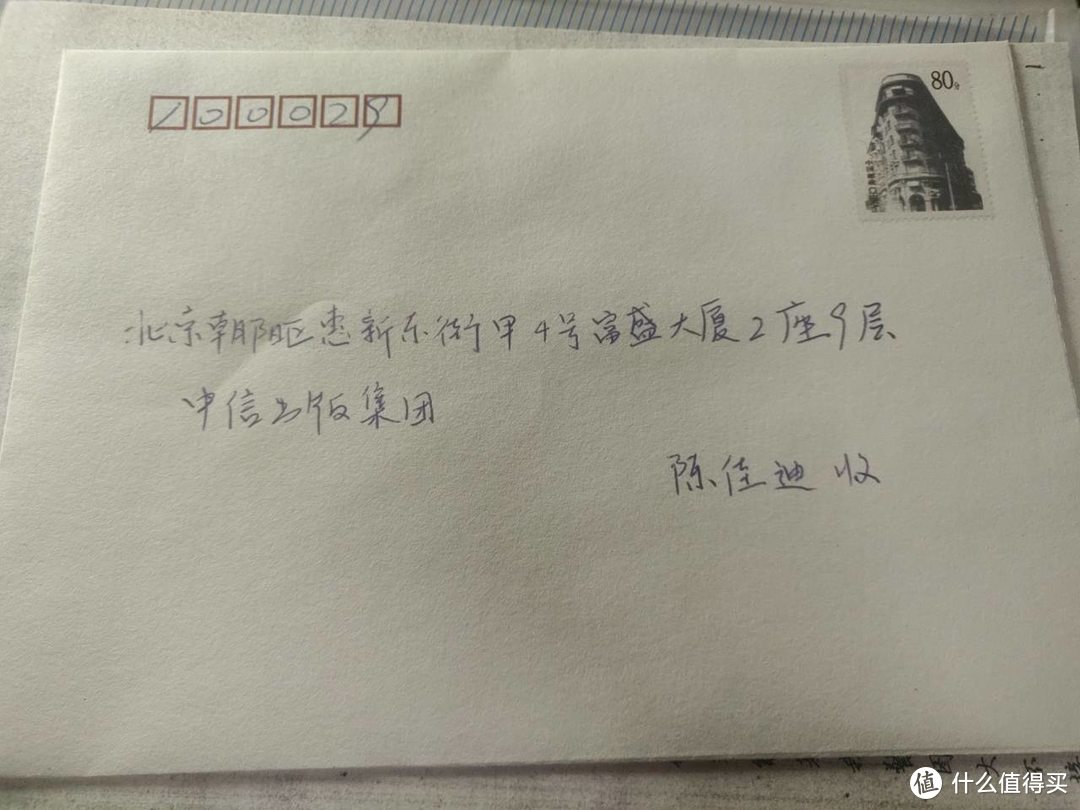 100029
80分
北京朝阳区惠新东街甲4号富盛大厦2座9层
中信出版集团
陈佳迪 收
值 什么值得买